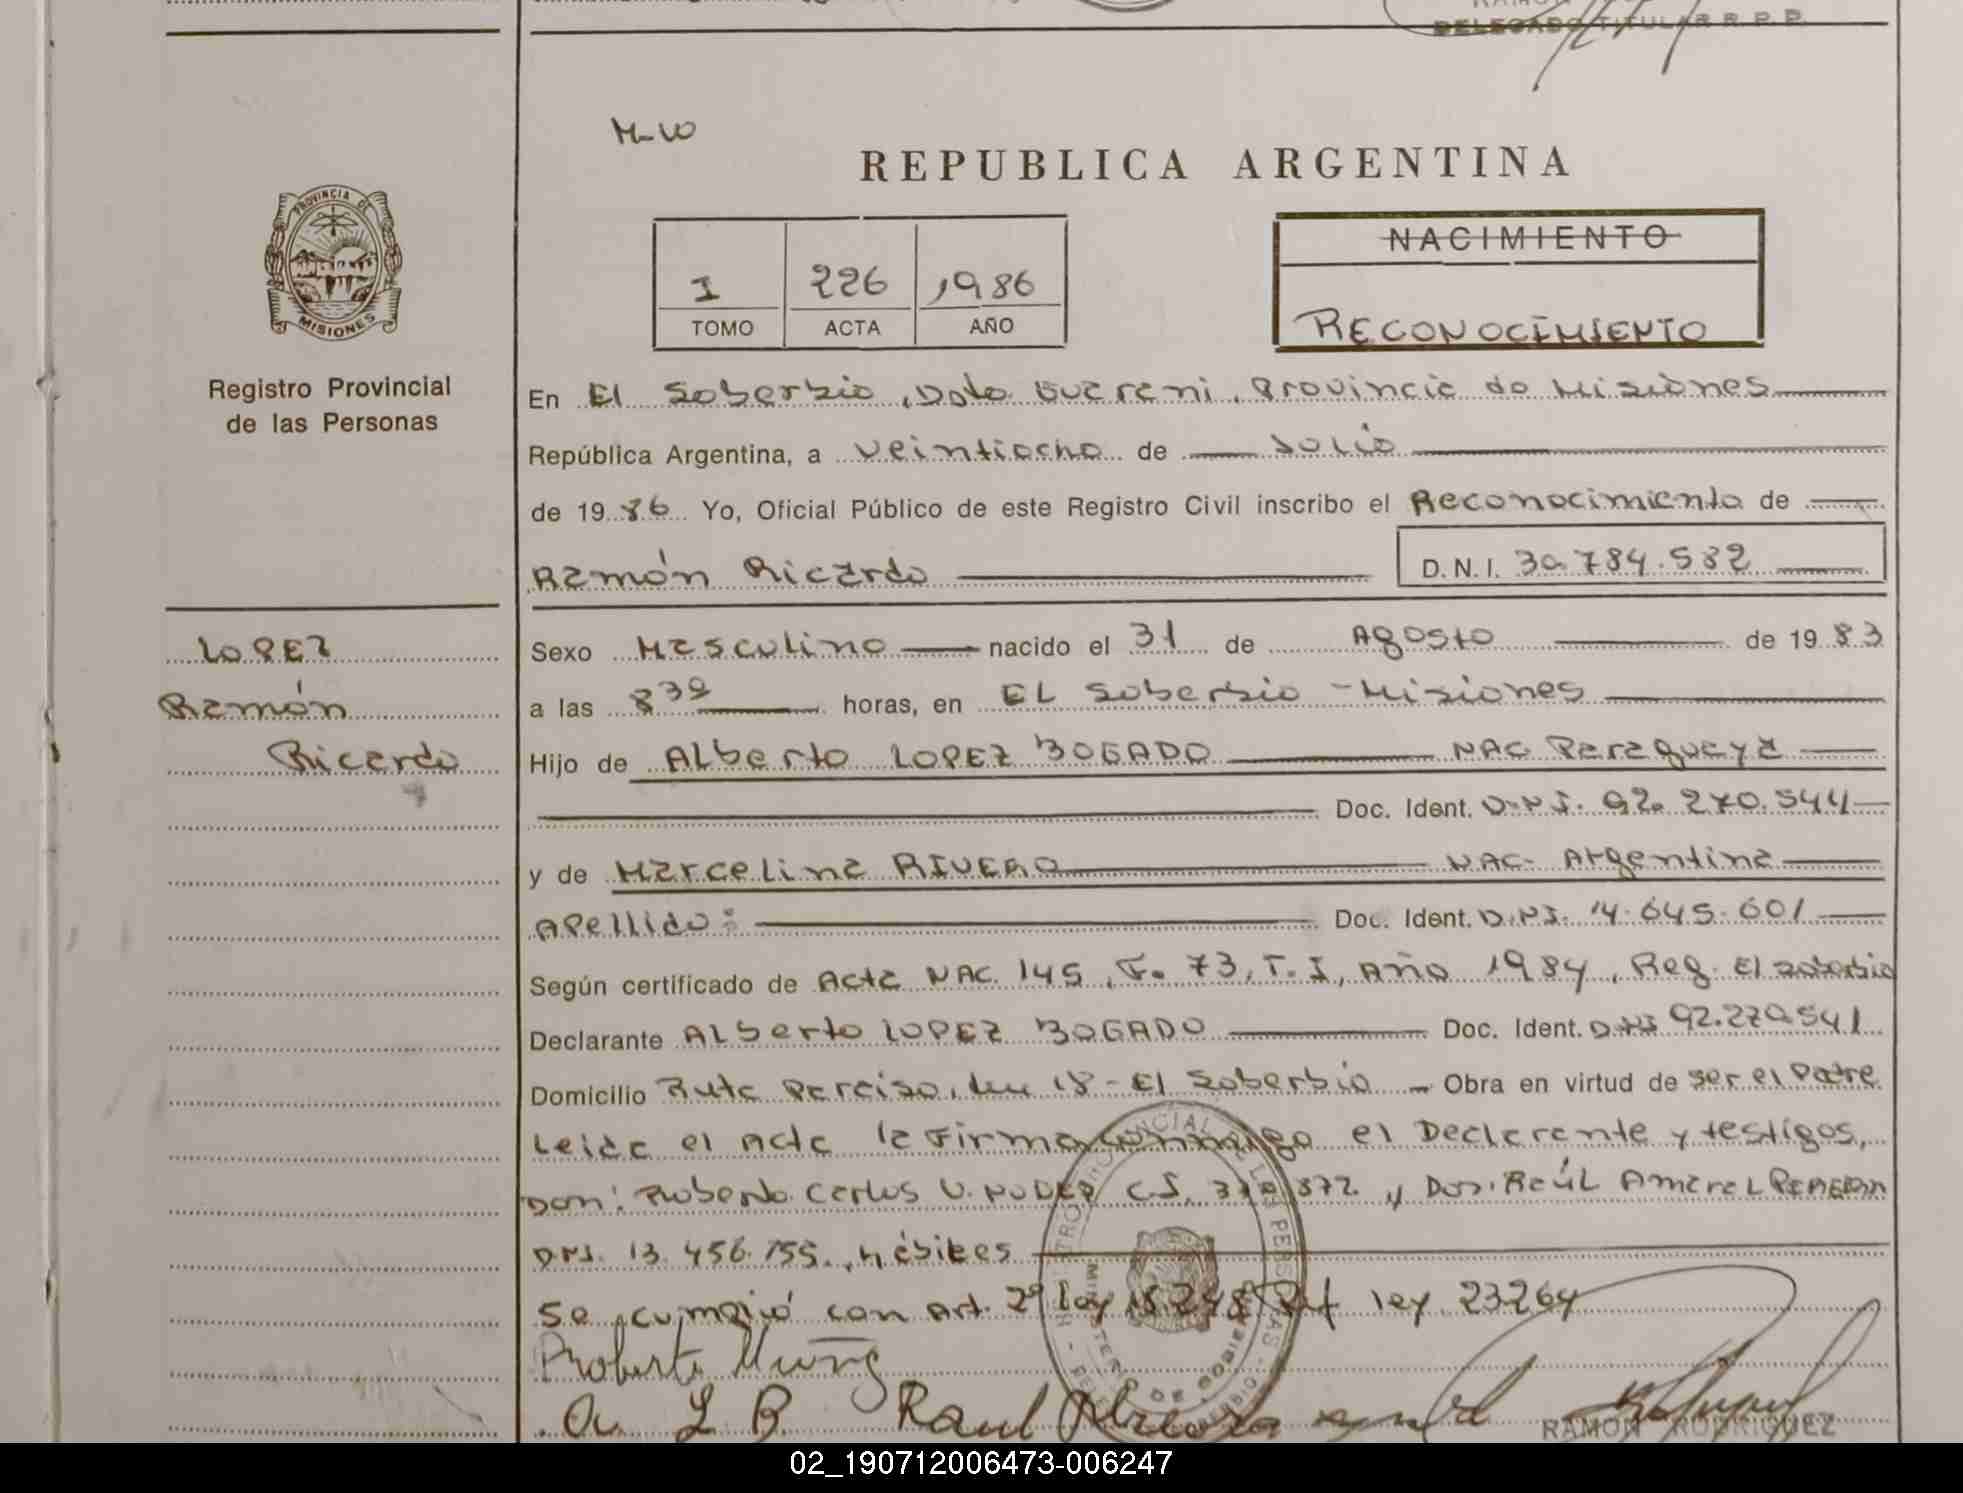 DELEGADO TITULAR R. P. P.
M-W
REPUBLICA ARGENTINA
PROVINCIA DE
MISIONES
Registro Provincial
de las Personas
I 226 1986
TOMO ACTA AÑO
NACIMIENTO
RECONOCIMIENTO
En El Soberbio, Dpto. Guarani, Provincia de Misiones
República Argentina, a veintiocho de Julio
de 19 86 Yo, Oficial Público de este Registro Civil inscribo el Reconocimiento de
Ramón Ricardo D.N.I. 30.784.532
LOPEZ
Ramón
Ricardo
Sexo Masculino nacido el 31 de Agosto de 19 83
a las 8 30 horas, en El Soberbio - Misiones
Hijo de Alberto LOPEZ BOGADO NAC Paraguaya
Doc. Ident. D.N.I. 92.270.541
y de Marcelina RIVERO NAC- Argentina
Apellido: Doc. Ident. D.N.I. 14.645.601
Según certificado de Acta NAC. 145, F. 73, T. I, Año 1984, Reg. El Soberbio
Declarante Alberto LOPEZ BOGADO Doc. Ident. D.N.I 92.270.541
Domicilio Ruta Paraiso, km 18 - El Soberbio - Obra en virtud de ser el Padre
Leida el Acta la firma conmigo el Declarante y testigos,
Don: Roberto Carlos C.I. y Don. Raúl Amaral
DNI. 13.456.155., hábiles
Se cumplió con Art. 2º Ley 18.248 Ref ley 23264
A L B Raul
RAMON RODRIGUEZ
02_190712006473-006247